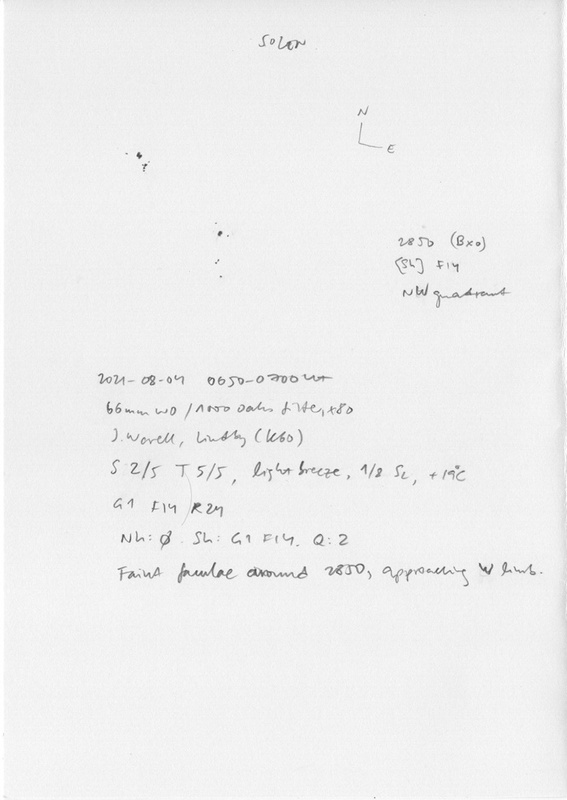 SOLEN
N
E
2850 (Bxo)
[Sh] F14
NW quadrant
2021-08-04 0650-0700 UT
66mm WO / 1000 Oaks filter, x80
J. Warell, Lindby (K60)
S 2/5 T 5/5, light breeze, 1/8 Sc, +19°C
G1 F14 R24
Nh: Ø. Sh: G1 F14. Q: 2
Faint faculae around 2850, approaching W limb.